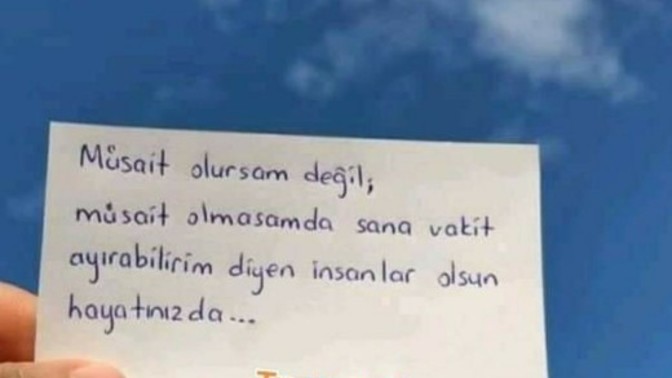 Müsait olursam değil;
müsait olmasamda sana vakit
ayırabilirim diyen insanlar olsun
hayatınızda...